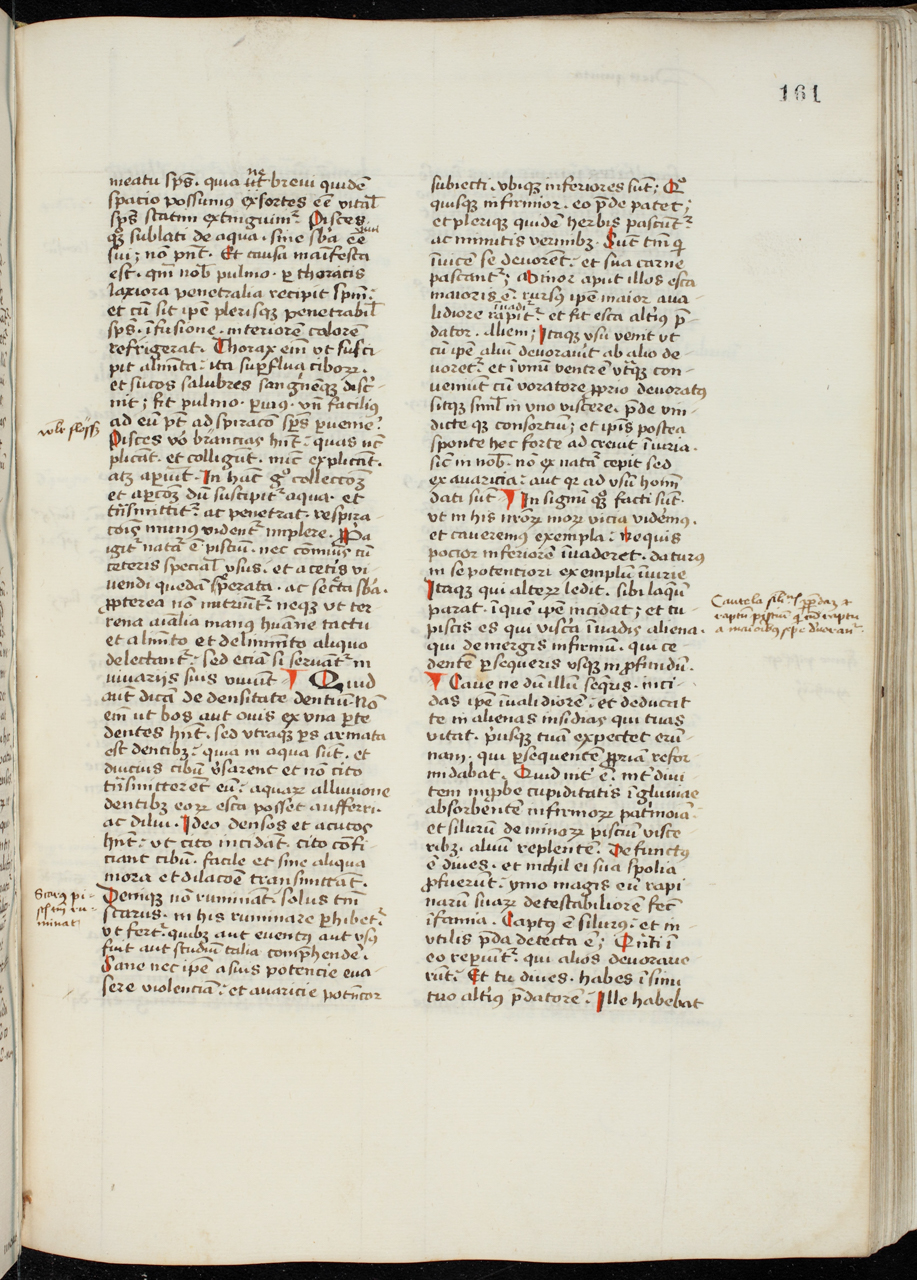 161
meatu sp̄s. quia ut ne breui quidē
spacio possumus exsortes eē vital
sp̄s statim extinguimr. Pisces
qꝫ sublati de aqua. sine sb̄a eē
sui; nō pn̄t. Et causa manifesta
est. qm̄ nob̄ pulmo. ꝑ thoracis
laxiora penetralia recipit sp̄m.
et cū sit ip̄e plerisqꝫ penetrabil
sp̄s. īfusione. interiorē calorē
refrigerat. Thorax em̄ vt susci
pit alimēta: ita suꝑflua ciboꝝ.
et sucos salubres sangīneqꝫ disc̄
nit; fit pulmo. ꝑuius. vn̄ facilius
ad eū pt̄ adspiracō sp̄s ꝑuenire.
Pisces vō brancias hn̄t: quas nc̄
plicāt. et colligūt. nūc explicāt.
atqꝫ aꝑiūt. In hac gͦ collectōe
et aꝑcōe dū suscipitr aqua. et
tn̄smittitr ac penetrat. respira
cōis munus videntr implere. Ꝓp̄a
igitr natā ē pisciū. nec cōmūis cū
ceteris special vsus. et a cetis vi-
uendi quedā sꝑata. ac secta sb̄a.
ꝓpterea nō nutriūtr. neqꝫ vt ter-
rena aīalia manꝯ huāne tactu
et alimēto et delinimēto aliquo
delectantr: sed eciā si seruātr in
viuariis suis viuūt. Quid
aūt dicā de densitate dentiū. Nō
em̄ ut bos aut ouis ex vna ꝑte
dentes hn̄t. sed vtraqꝫ ꝑs armata
est dentibꝫ: quia in aqua sūt. et
diucius cibū v̄sarent et nō cito
tn̄smitterēt eū: aquaꝝ alluuione
dentibꝫ eoꝝ esca posset aufferri.
ac dilui. Ideo densos et acutos
hn̄t: vt cito incidāt. cito cōfi
ciant cibū. facile et sine aliqua
mora et dilacōe transmittāt.
Deniqꝫ nō ruminat. solus tm̄
scarus. in his ruminare ꝑhibetr
vt fertr. quibꝫ aut euentꝯ aut vsꝯ
fuit aut studiū talia compͤhendē.
Sane nec ip̄e asius potencie eua-
sere violenciā: et auaricie potn̄cior
Scarꝯ pi-
scis ru-
minat
subiecti. vbiqꝫ inferiores sūt; Qͦ
quisqꝫ infirmior. eo p̄de patet;
et pleriqꝫ quidē herbis pascūtr
ac minutis vermibꝫ. Sūt tm̄ qi
īuicē se deuorēt: et sua carne
pascantr; Minor aput illos esca
maioris ē. rursꝯ ip̄e maior aua-
lidiore rapitr. et fit esca altiꝯ p̄
dator. aliem; Itaqꝫ vsu venit vt
cū ip̄e aliū deuorauit ab alio de-
uoretr. et ī vnū ventrē vtqꝫ con-
ueniūt cū voratore ꝓprio deuoratꝯ
sitqꝫ siml̄ in vno viscere. p̄de vin-
dicte qꝫ consortiū; et ip̄is postea
sponte hec forte ad creuit īuria.
sic̄ in nob̄. nō ex natā cepit sed
ex auaricia: aut qr ad vsū hoīm
dati sūt In signū qꝫ facti sūt.
vt in his nr̄oꝝ moꝝ vicia vidēmꝯ.
et caueremus exempla: Ne quis
pocior inferiorē īuaderet. daturꝯ
in se potentiori exemplū iniurie
Itaqꝫ qui alteꝝ ledit. sibi laqū
parat. ī quē ip̄e incidat; et tu
piscis es qui visc̄a īuadis aliena.
qui demergis infirmū. qui ce-
dentē ꝑsequeris vsqꝫ in ꝓfundū.
Caue ne dū illū seqr̄is. inci-
das ip̄e ī validiorē: et deducat
te in alienas insidias qui tuas
vitat. pͥusqꝫ tuā expectet erū-
nam. qui ꝑsequentē ꝓpriā refor-
midabat. Quid int̄ ē. int̄ diui-
tem inꝓbe cupiditatis ī gluuiae
absorbentē infirmoꝝ pat̄moia.
et silurū de minoꝝ pisciū visce-
ribꝫ. aluū replentē. Defunctꝯ
ē diues. et nichil ei sua spolia
ꝓfuerūt. ymo magis eū rapi
narū suaꝝ detestabiliorē fec̄
īfamia. Captꝯ ē silurꝯ. et in-
vtilis p̄da detecta ē; Qn̄ti ī
eo reꝑiūtr qui alios deuoraue-
rūt. Et tu diues. habes ī sinu
tuo altiꝯ p̄datorē. Ille habebat